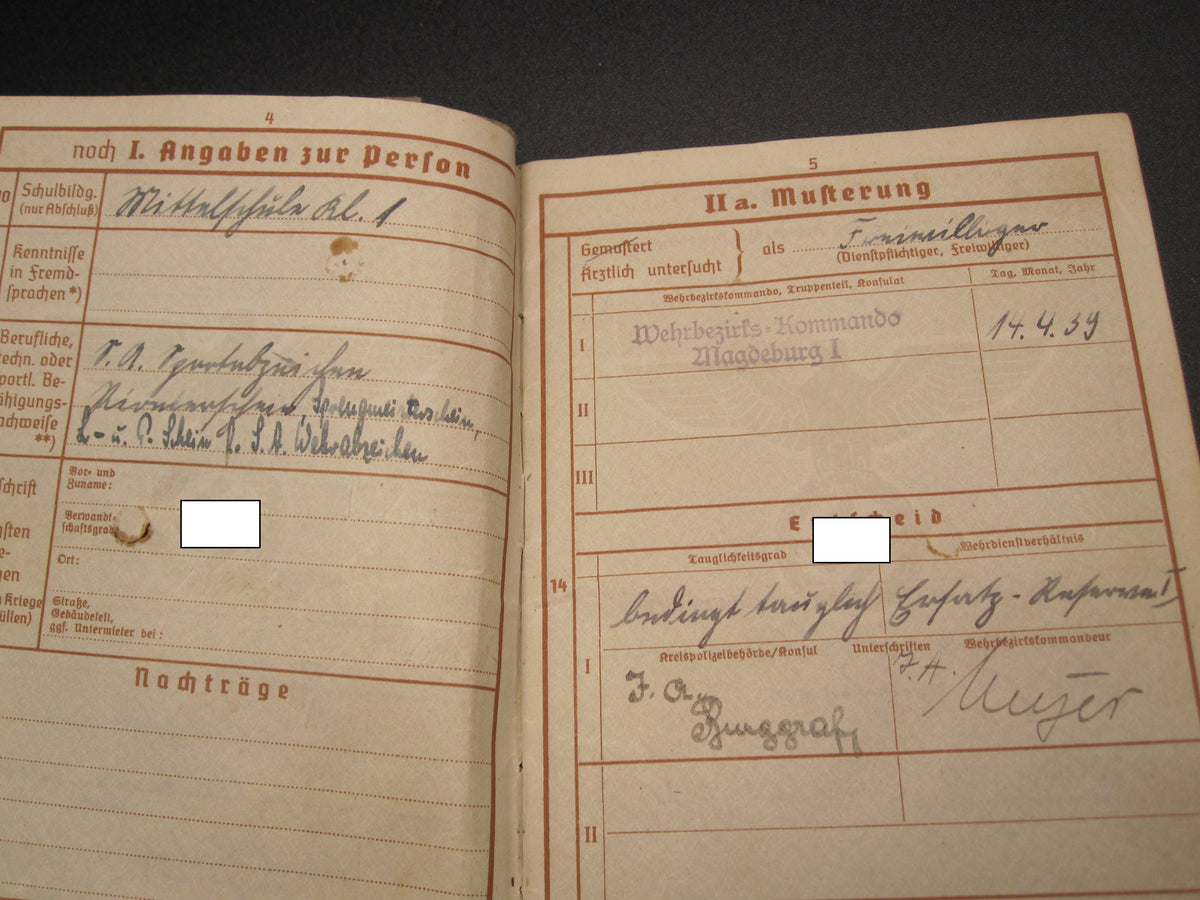 4
noch I. Angaben zur Person
Schulbildg.
(nur Abschluß)
Mittelschule Kl. 1
Kenntnisse
in Fremd-
sprachen *)
Berufliche,
techn. oder
sportl. Be-
fähigungs-
nachweise
**)
S. A. Sportabzeichen
Pionierschein, Sprengmeisterschein,
L- u. P. Schein S. A. Wehrabzeichen
Vor- und
Zuname:
Verwandt-
schaftsgrad
Ort:
Straße,
Gebäudeteil,
ggf. Untermieter bei:
Nachträge
5
II a. Musterung
Gemustert
Ärztlich untersucht
als Freiwilliger
(Dienstpflichtiger, Freiwilliger)
Wehrbezirkskommando, Truppenteil, Konsulat
Tag, Monat, Jahr
I
Wehrbezirks-Kommando
Magdeburg I
14.4.39
II
III
Entscheid
14
Tauglichkeitsgrad
Wehrdienstverhältnis
bedingt tauglich
Ersatz-Reserve I
I
Kreispolizeibehörde/Konsul
Unterschriften
Wehrbezirkskommandeur
J. A.
Burggraf
J. A.
Meyer
II